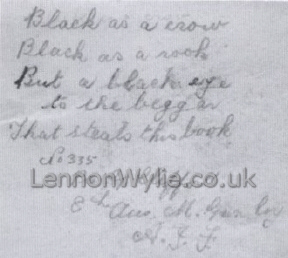 Black as a crow
Black as a rook
But a black eye
to the beggar
That steals this book
No 335
LennonWylie.co.uk
8th Aus. M. Gun Coy
A. I. F.